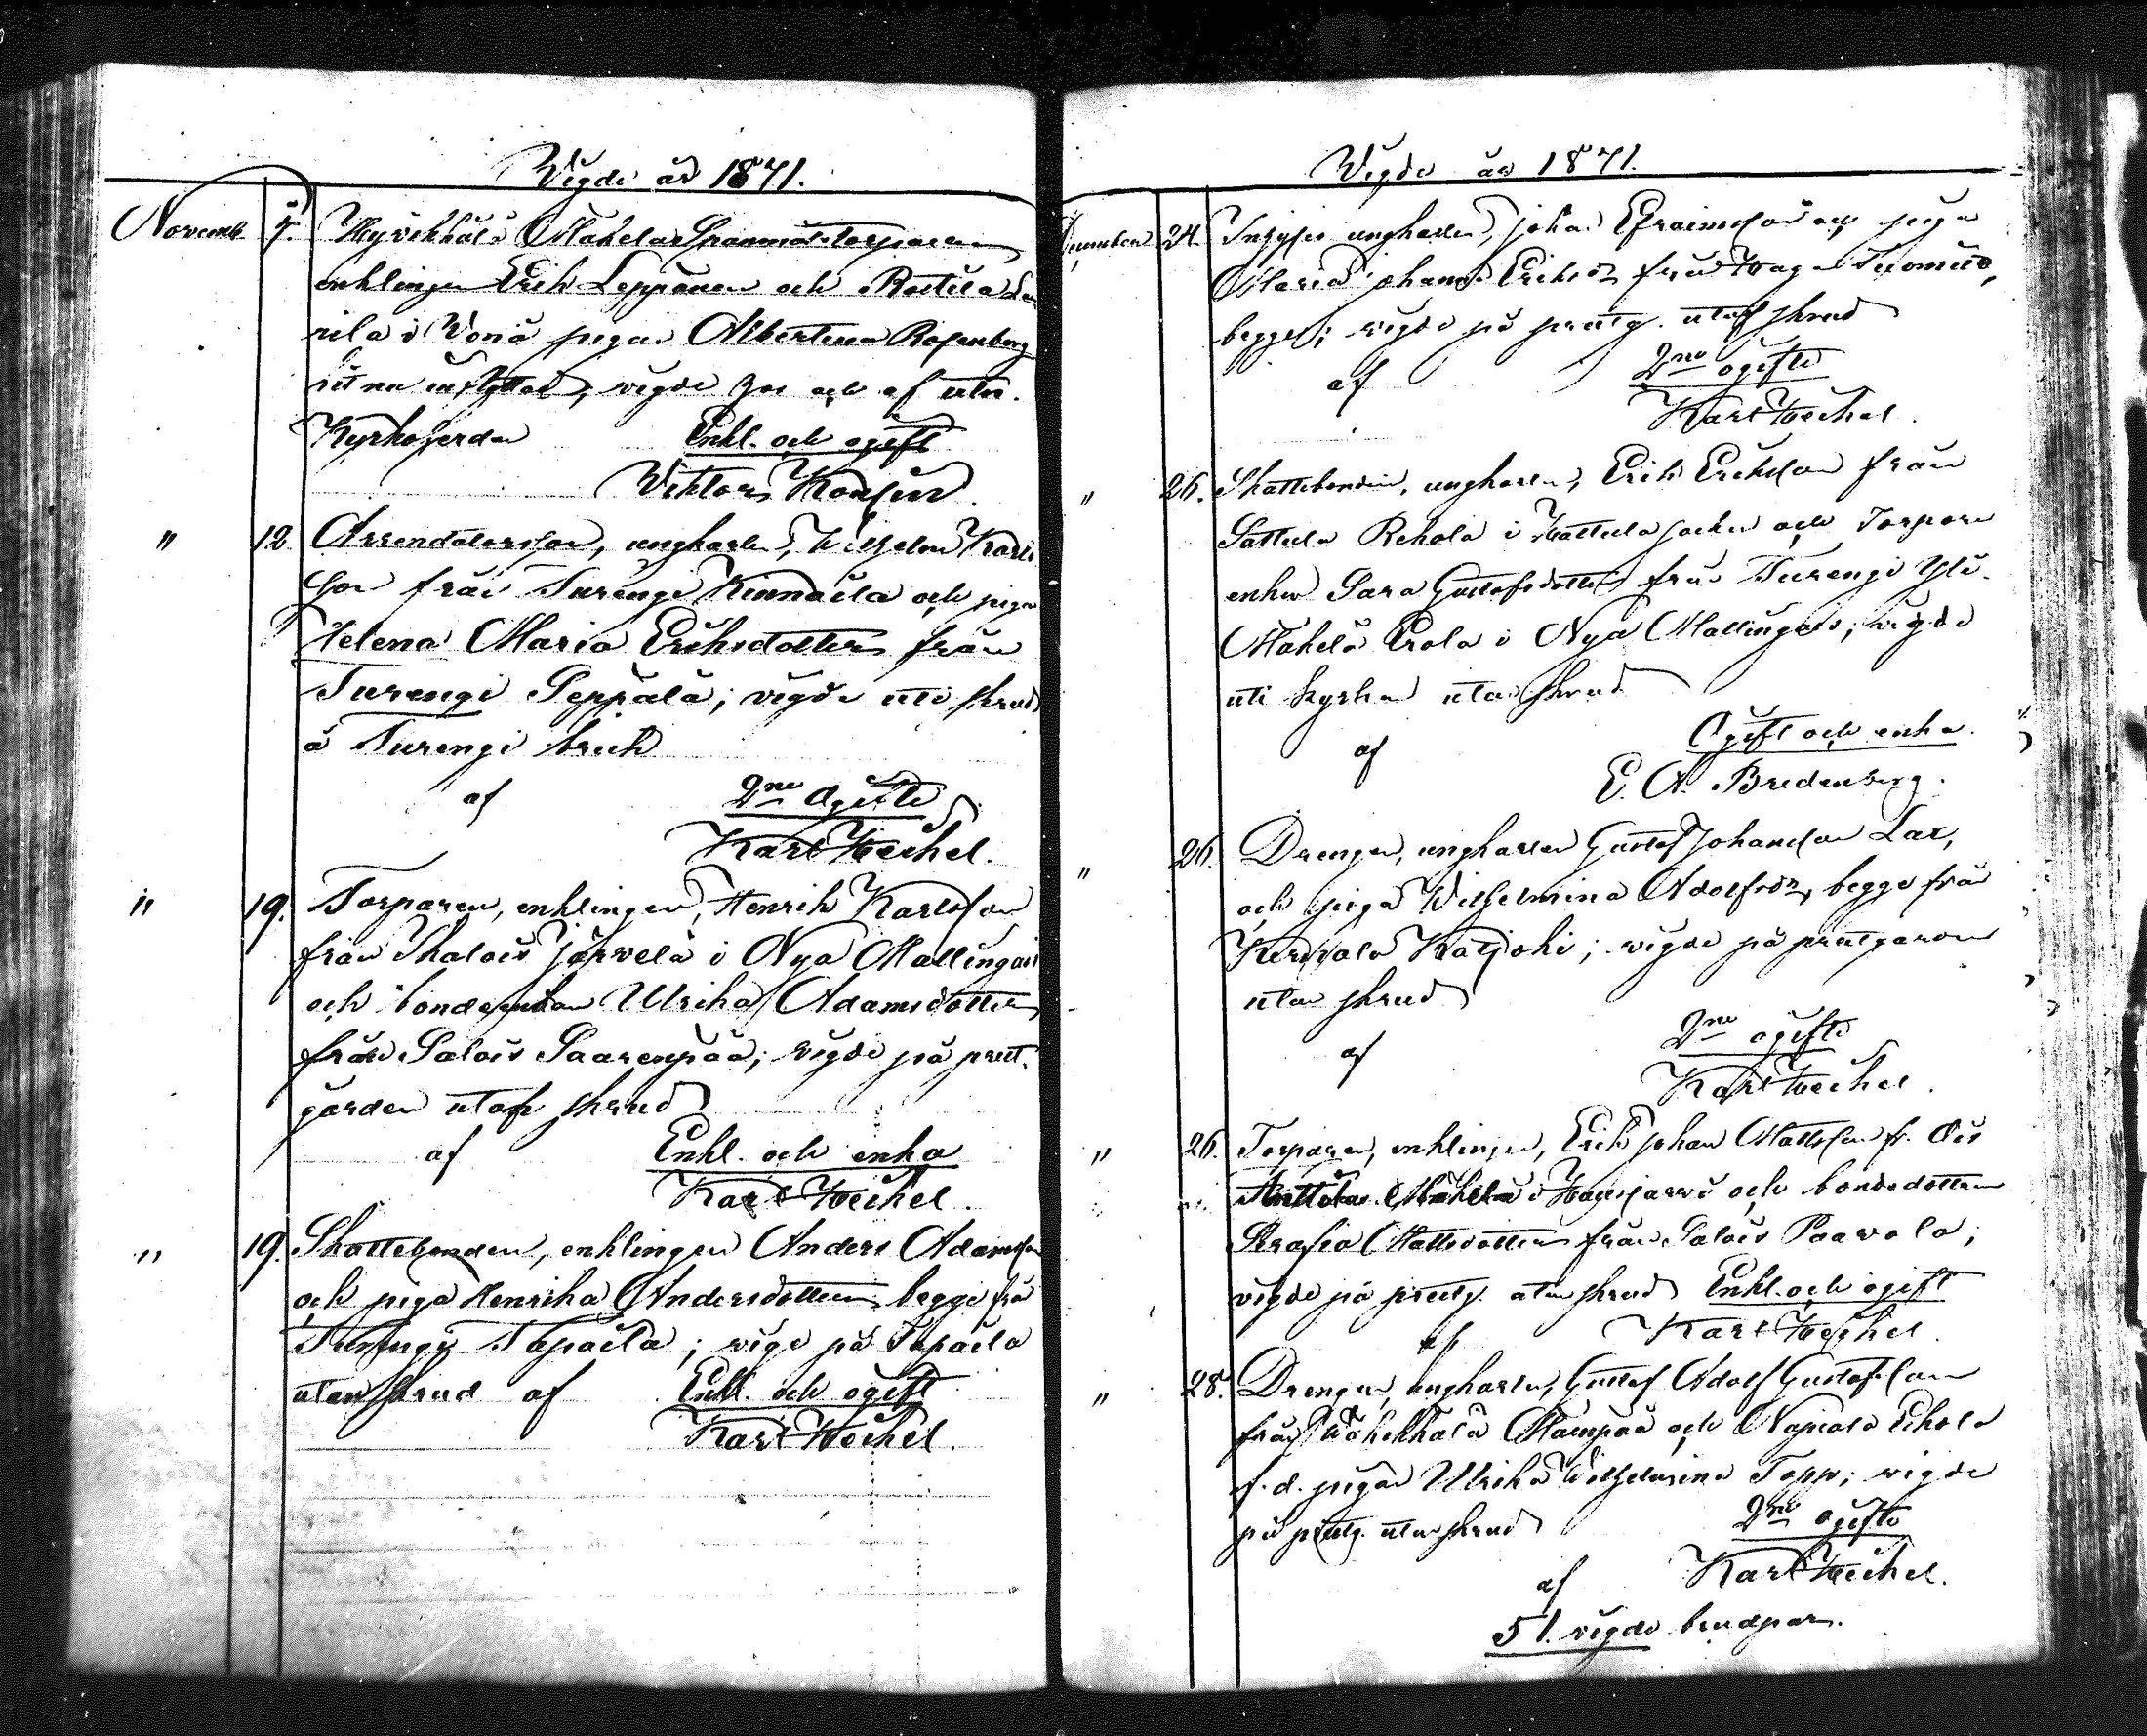 Vigde år 1871.
Novemb 5. Hyvikkälä Mäkelä torparen
enklingen Erik Leppänen och Rastila
rila i Vonå pigan Albertina Rosenberg
vigde hos och af utn.
Kyrkoherden Enkl. och ogift
Viktor
" 12 Arrendatorson, ungkarlen, Wilhelm Karls
son från Turengi Kinnaila och pigan
Helena Maria Eriksdotter från
Turengi Seppälä; vigde uti skrud
å Turengi bruk
af 2ne Ogifte
Karl Heikel.
" 19. Torparen, enklingen, Henrik Karlsson
från Järvelä i Nya Mallingais
och bondeenkan Ulrika Adamsdotter
från Salois Saarenpää; vigde på prest-
gården utan skrud
af Enkl. och enka
Karl Heikel.
" 19. Skattebonden, enklingen Anders Adamsson
och piga Henrika Andersdotter begge frå
Turengi Tapaila; vigde på Tapaila
utan skrud af Enkl. och ogift
Karl Heikel.
Vigde år 1871.
December 24. ungkarlen, Johan Efraimsson och piga
Maria Johana Eriksdr från
begge; vigde på prestg. utan skrud
af 2ne ogifte
Karl Heikel.
" 26. Skattebonden, ungkarlen, Erik Eriksson från
Sattula Rekola i Hattula socken och Torpare
enkan Sara Gustafsdotter från Turengi Yli-
Mäkelä Erola i Nya Mallingais; vigde
uti kyrkan utan skrud
af Ogift och enka.
E. A. Bredenberg.
" 26. Drengen, ungkarlen Gustaf Johansson Lax,
och piga Wilhelmina Adolfsdr, begge från
Katjoki; vigde på prestgården
utan skrud
af 2ne ogifte
Karl Heikel.
" 26. Torparen, enklingen, Erik Johan Mattsson fr.
Anttila Mäkelä i Hausjärvi och bondedottern
Serafia Mattsdotter från Salois Paavola;
vigde på prestg. utan skrud Enkl. och ogift
af Karl Heikel.
" 28. Drengen, ungkarlen, Gustaf Adolf Gustafsson
från och Napiala Eikola
f. d. pigan Ulrika Wilhelmina Topp; vigde
på prestg. utan skrud 2ne ogifte
af Karl Heikel.
51. vigde brudpar.